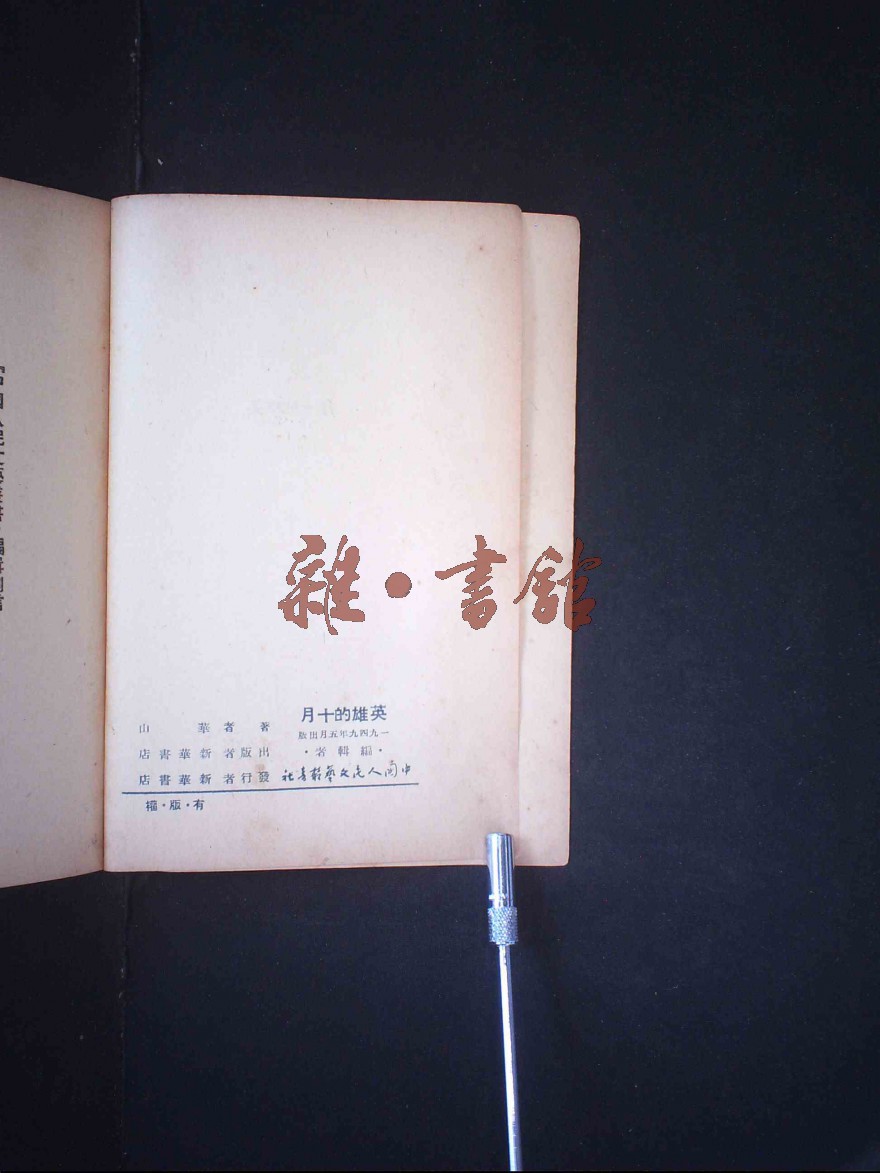 雜·書館
英雄的十月
一九四九年五月出版
·編輯者·
中国人民文藝叢書社
著者 華山
出版者 新華書店
發行者 新華書店
有·版·權